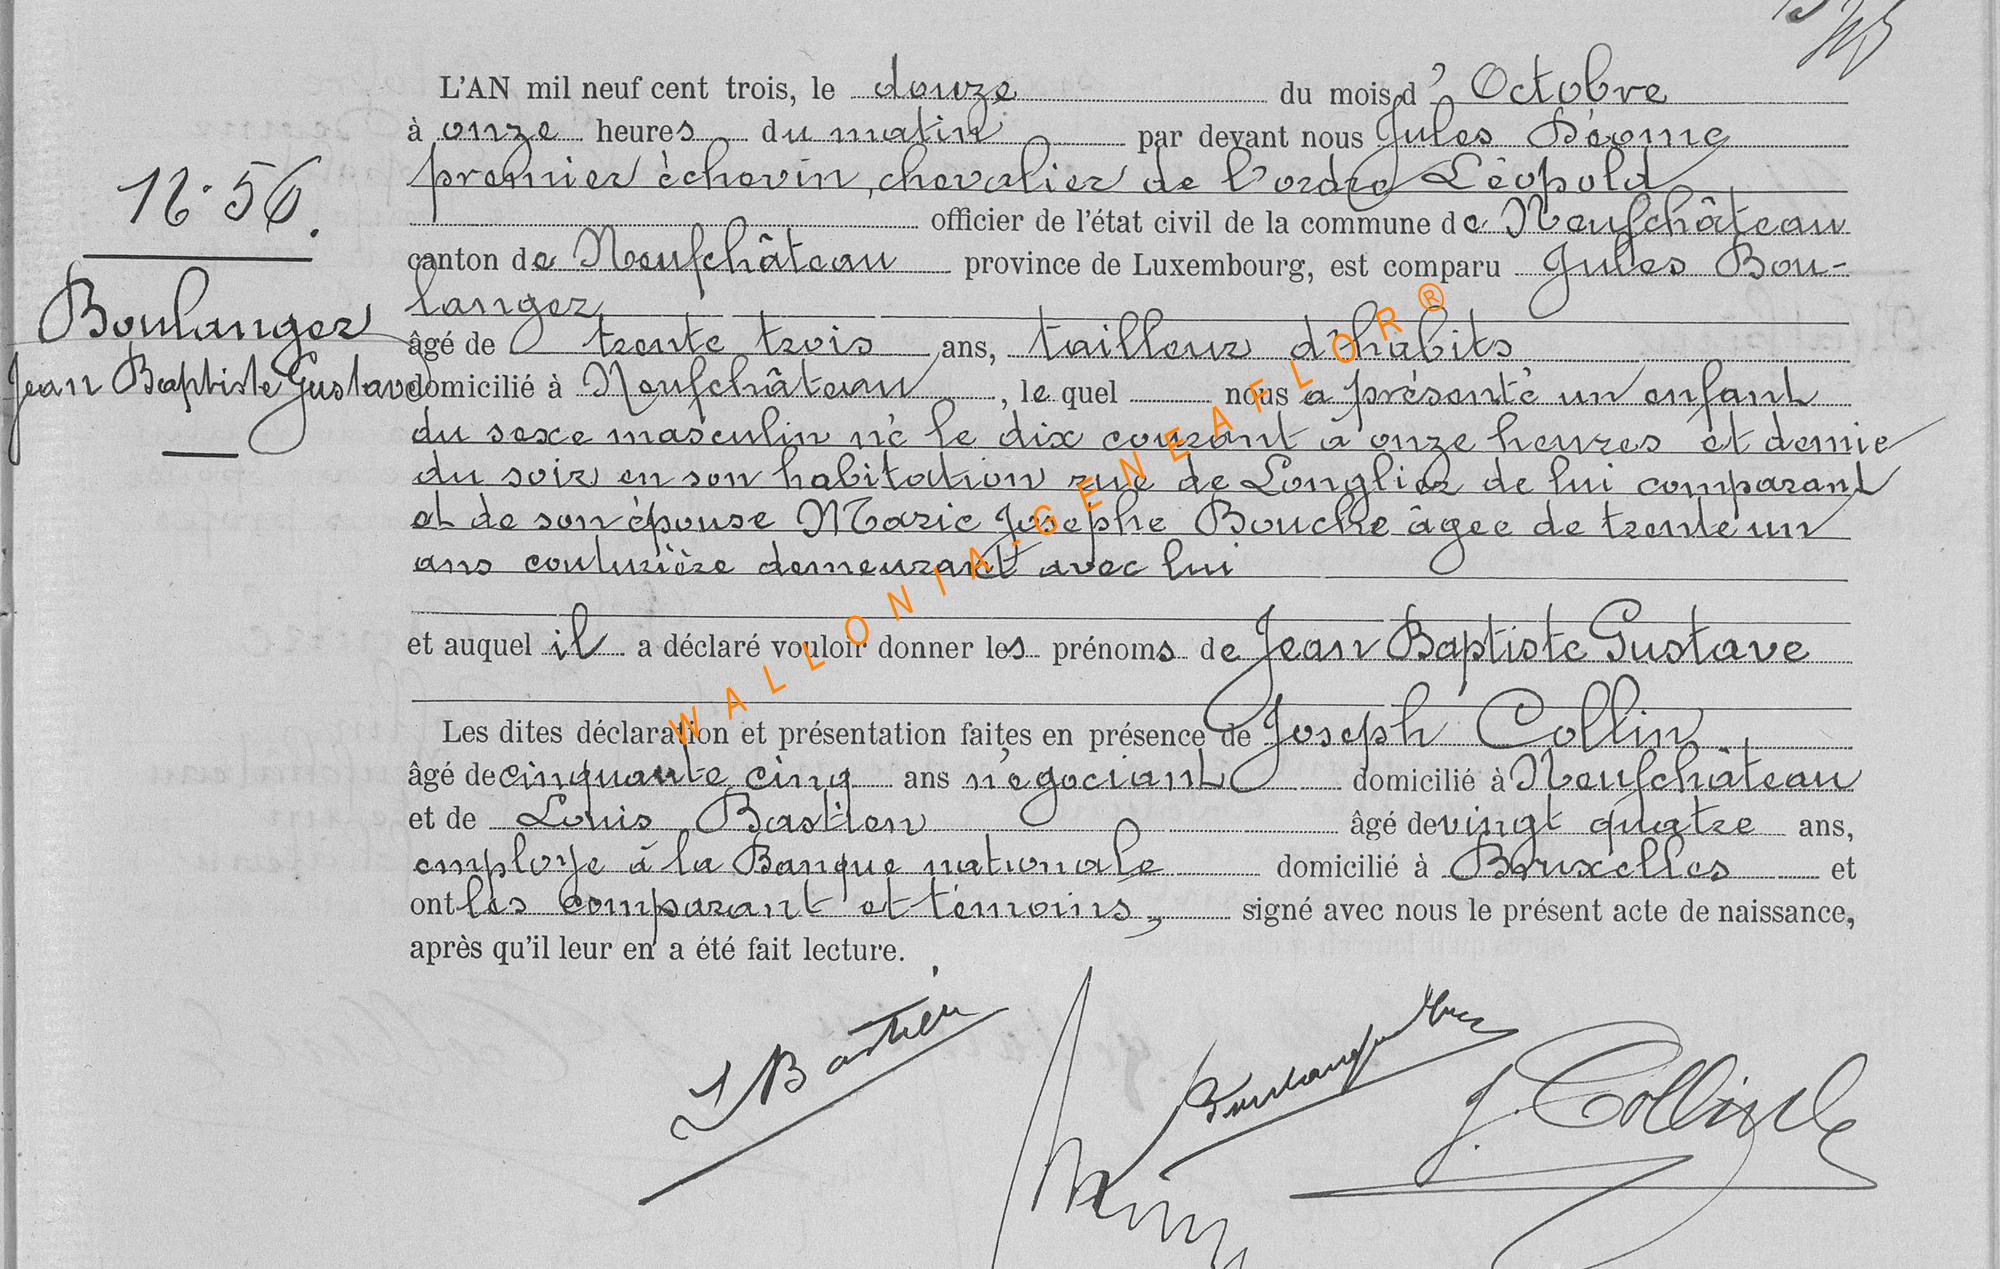 L'AN mil neuf cent trois, le douze du mois d'Octobre
à onze heures du matin par devant nous Jules Déome
premier échevin, chevalier de l'ordre Léopold
N. 56.
officier de l'état civil de la commune de Neufchâteau
canton de Neufchâteau province de Luxembourg, est comparu Jules Bou-
langer
Boulanger
âgé de trente trois ans, tailleur d'habits
Jean Baptiste Gustave
domicilié à Neufchâteau, le quel nous a présenté un enfant
du sexe masculin né le dix courant à onze heures et demie
du soir en son habitation rue de Longlier de lui comparant
et de son épouse Marie Josephe Bouché âgée de trente un
ans couturière demeurant avec lui
et auquel il a déclaré vouloir donner les prénoms de Jean Baptiste Gustave
Les dites déclaration et présentation faites en présence de Joseph Collin
âgé de cinquante cinq ans négociant domicilié à Neufchâteau
et de Louis Bastien âgé de vingt quatre ans,
employé à la Banque nationale domicilié à Bruxelles et
ont les comparant et témoins, signé avec nous le présent acte de naissance,
après qu'il leur en a été fait lecture.
WALLONIA-GENEAFLOR®
L Bastien
Boulanger
J. Collin